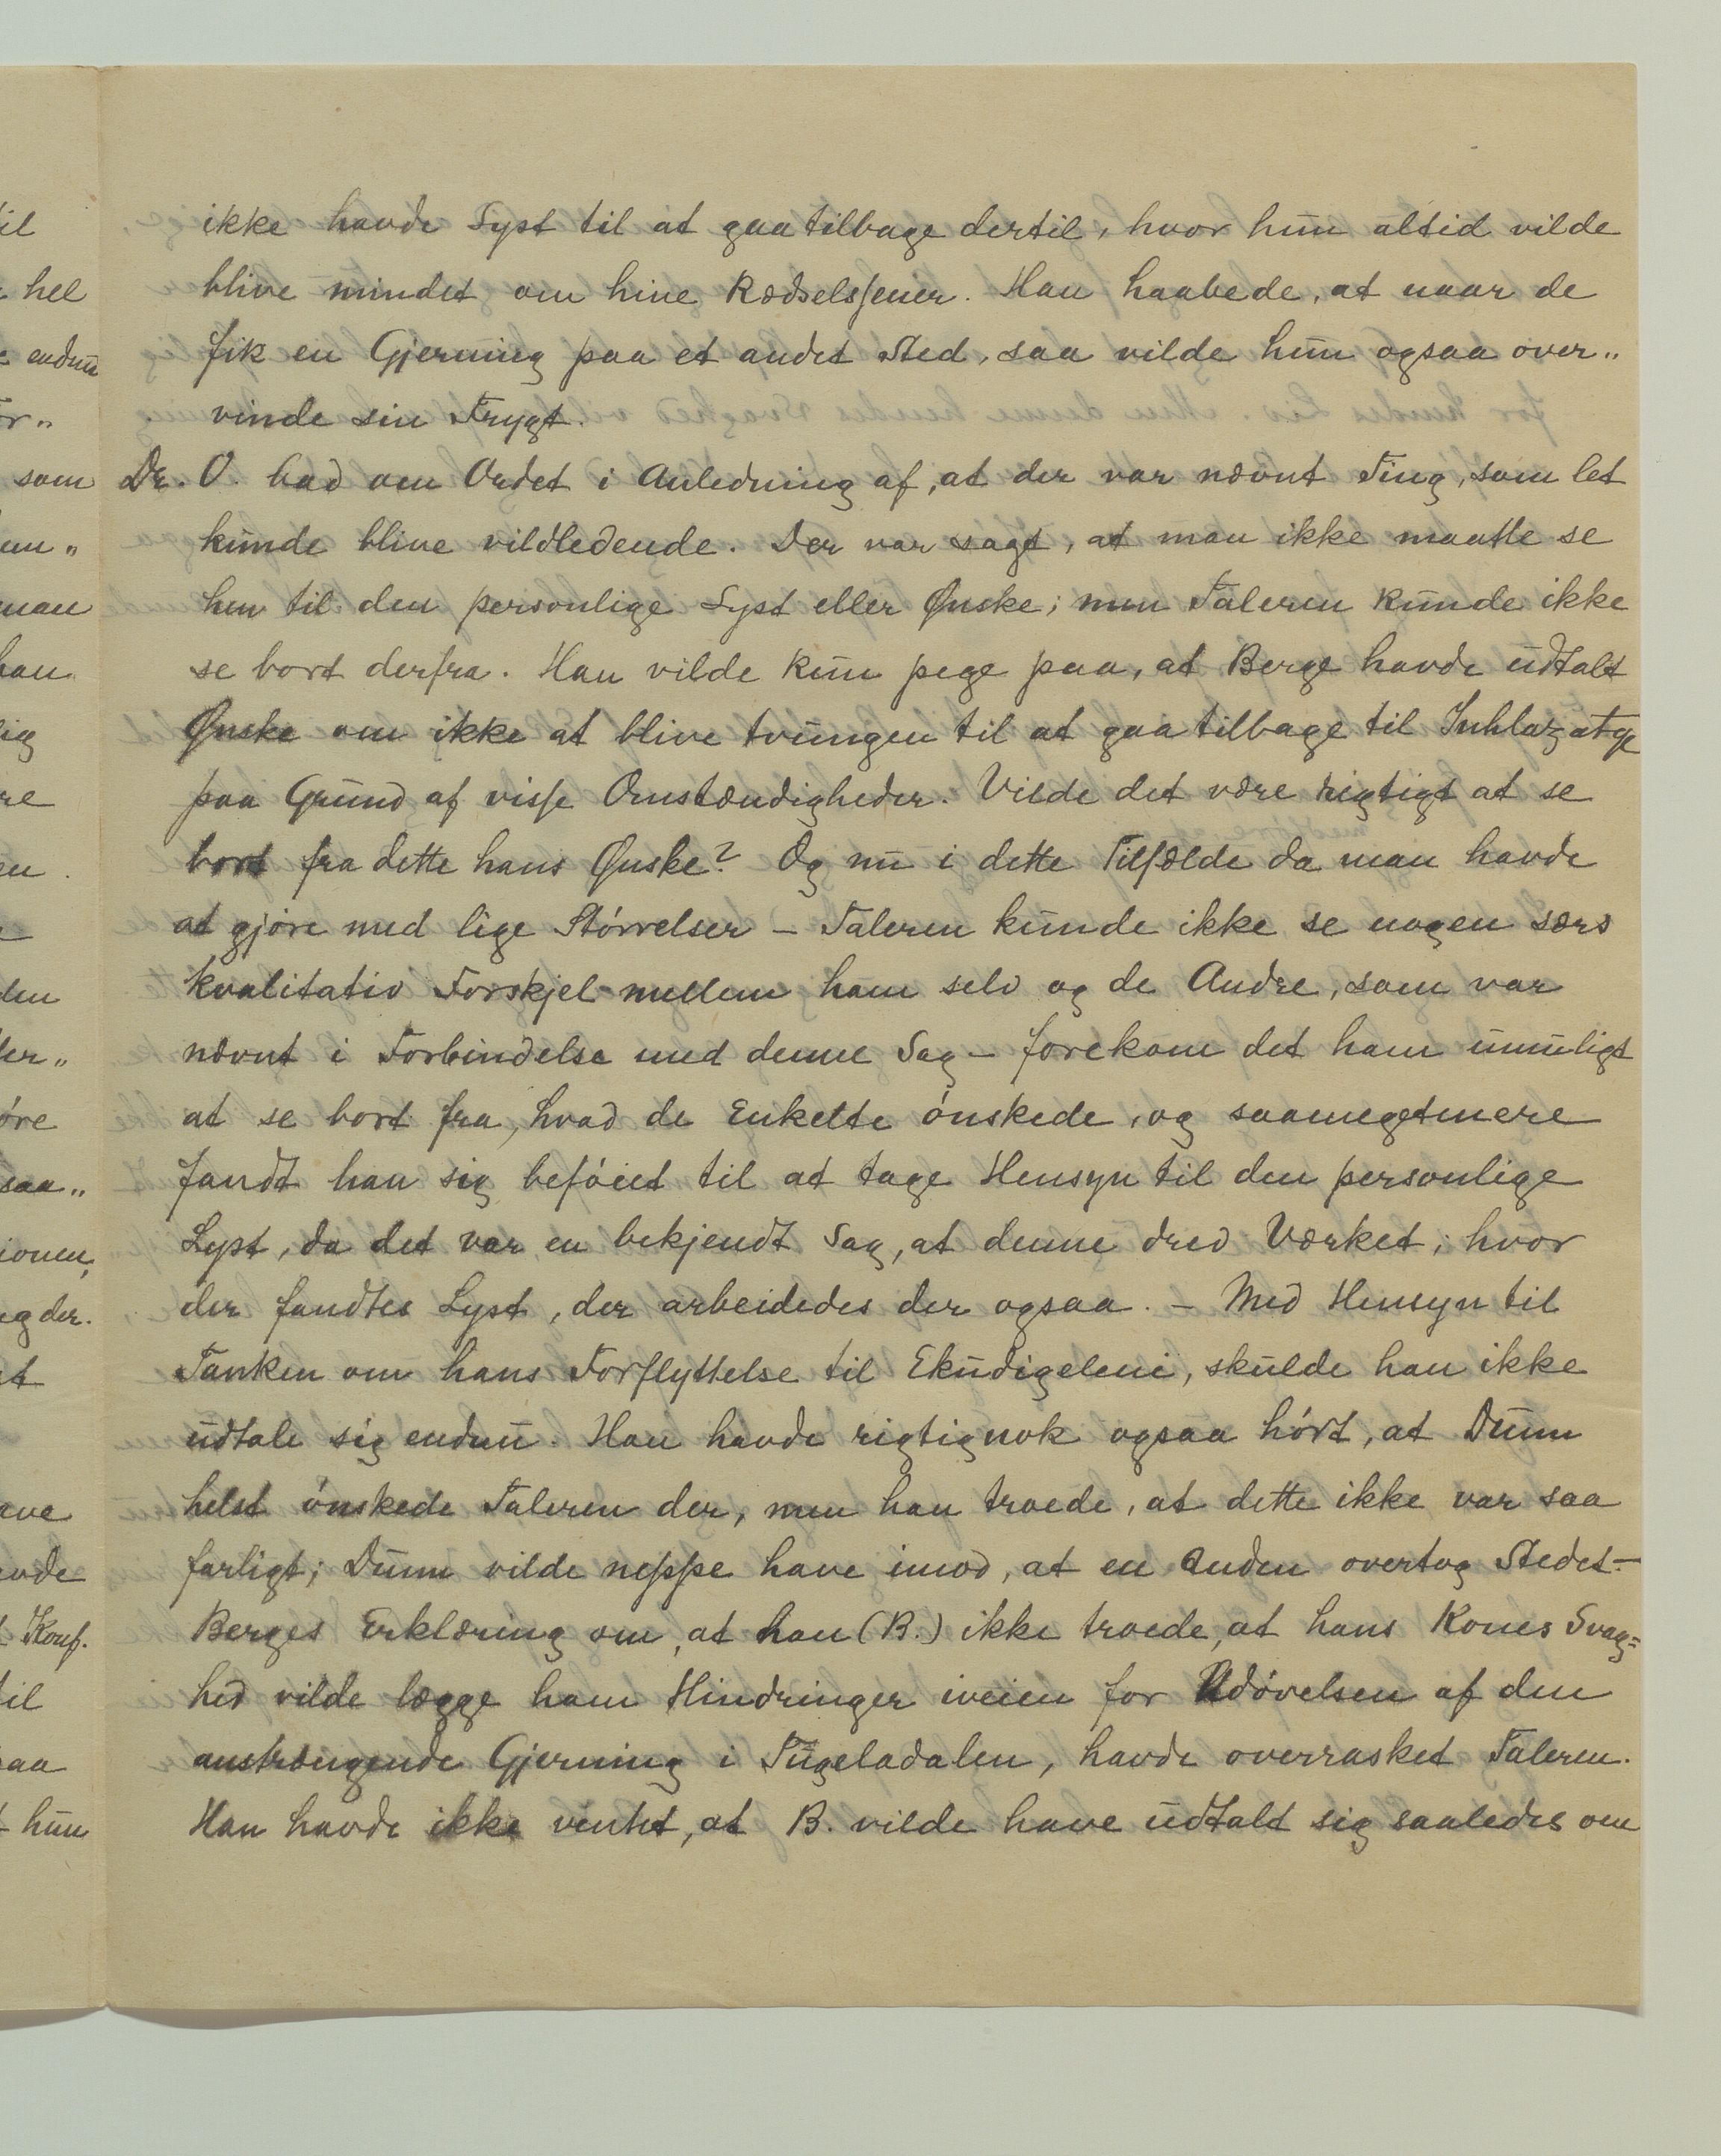 ikke havde Lyst til at gaa tilbage dertil, hvor hun altid vilde
blive mindet om hine Rædselsscener. Han haabede, at naar de
fik en Gjerning paa et andet Sted, saa vilde hun ogsaa over„
vinde sin Frygt.
Dr. O. bad om Ordet i Anledning af, at der var nævnt Ting, som let
kunde blive vildledende. Der var sagt, at man ikke maatte se
hen til den personlige Lyst eller Ønske; men Taleren kunde ikke
se bort derfra. Han vilde kun pege paa, at Berge havde udtalt
Ønske om ikke at blive tvungen til at gaa tilbage til Inhlazatye
paa Grund af visse Omstændigheder. Vilde det være rigtigt at se
bort fra dette hans Ønske? Og nu i dette Tilfælde da man havde
at gjøre med lige Størrelser – Taleren kunde ikke se nogen særs
kvalitativ Forskjel mellem ham selv og de Andre, som var
nævnt i Forbindelse med denne Sag – forekom det ham umuligt
at se bort fra, hvad de Enkelte ønskede, og saamegetmere
fandt han sig beføiet til at tage Hensyn til den personlige
Lyst, da det var en bekjendt Sag, at denne drev Værket; hvor
der fandtes Lyst, der arbeidedes der ogsaa. – Med Hensyn til
Tanken om hans Forflyttelse til Ekudigeleni, skulde han ikke
udtale sig endnu. Han havde rigtignok ogsaa hørt, at Dunn
helst ønskede Taleren der, men han troede, at dette ikke var saa
farligt; Dunn vilde neppe have imod, at en Anden overtog Stedet. –
Berges Erklæring om, at han (B.) ikke troede, at hans Kones Svag=
hed vilde lægge ham Hindringer iveien for Udøvelsen af den
anstrængende Gjerning i Tugeladalen, havde overrasket Taleren.
Han havde ikke ventet, at B. vilde have udtalt sig saaledes om